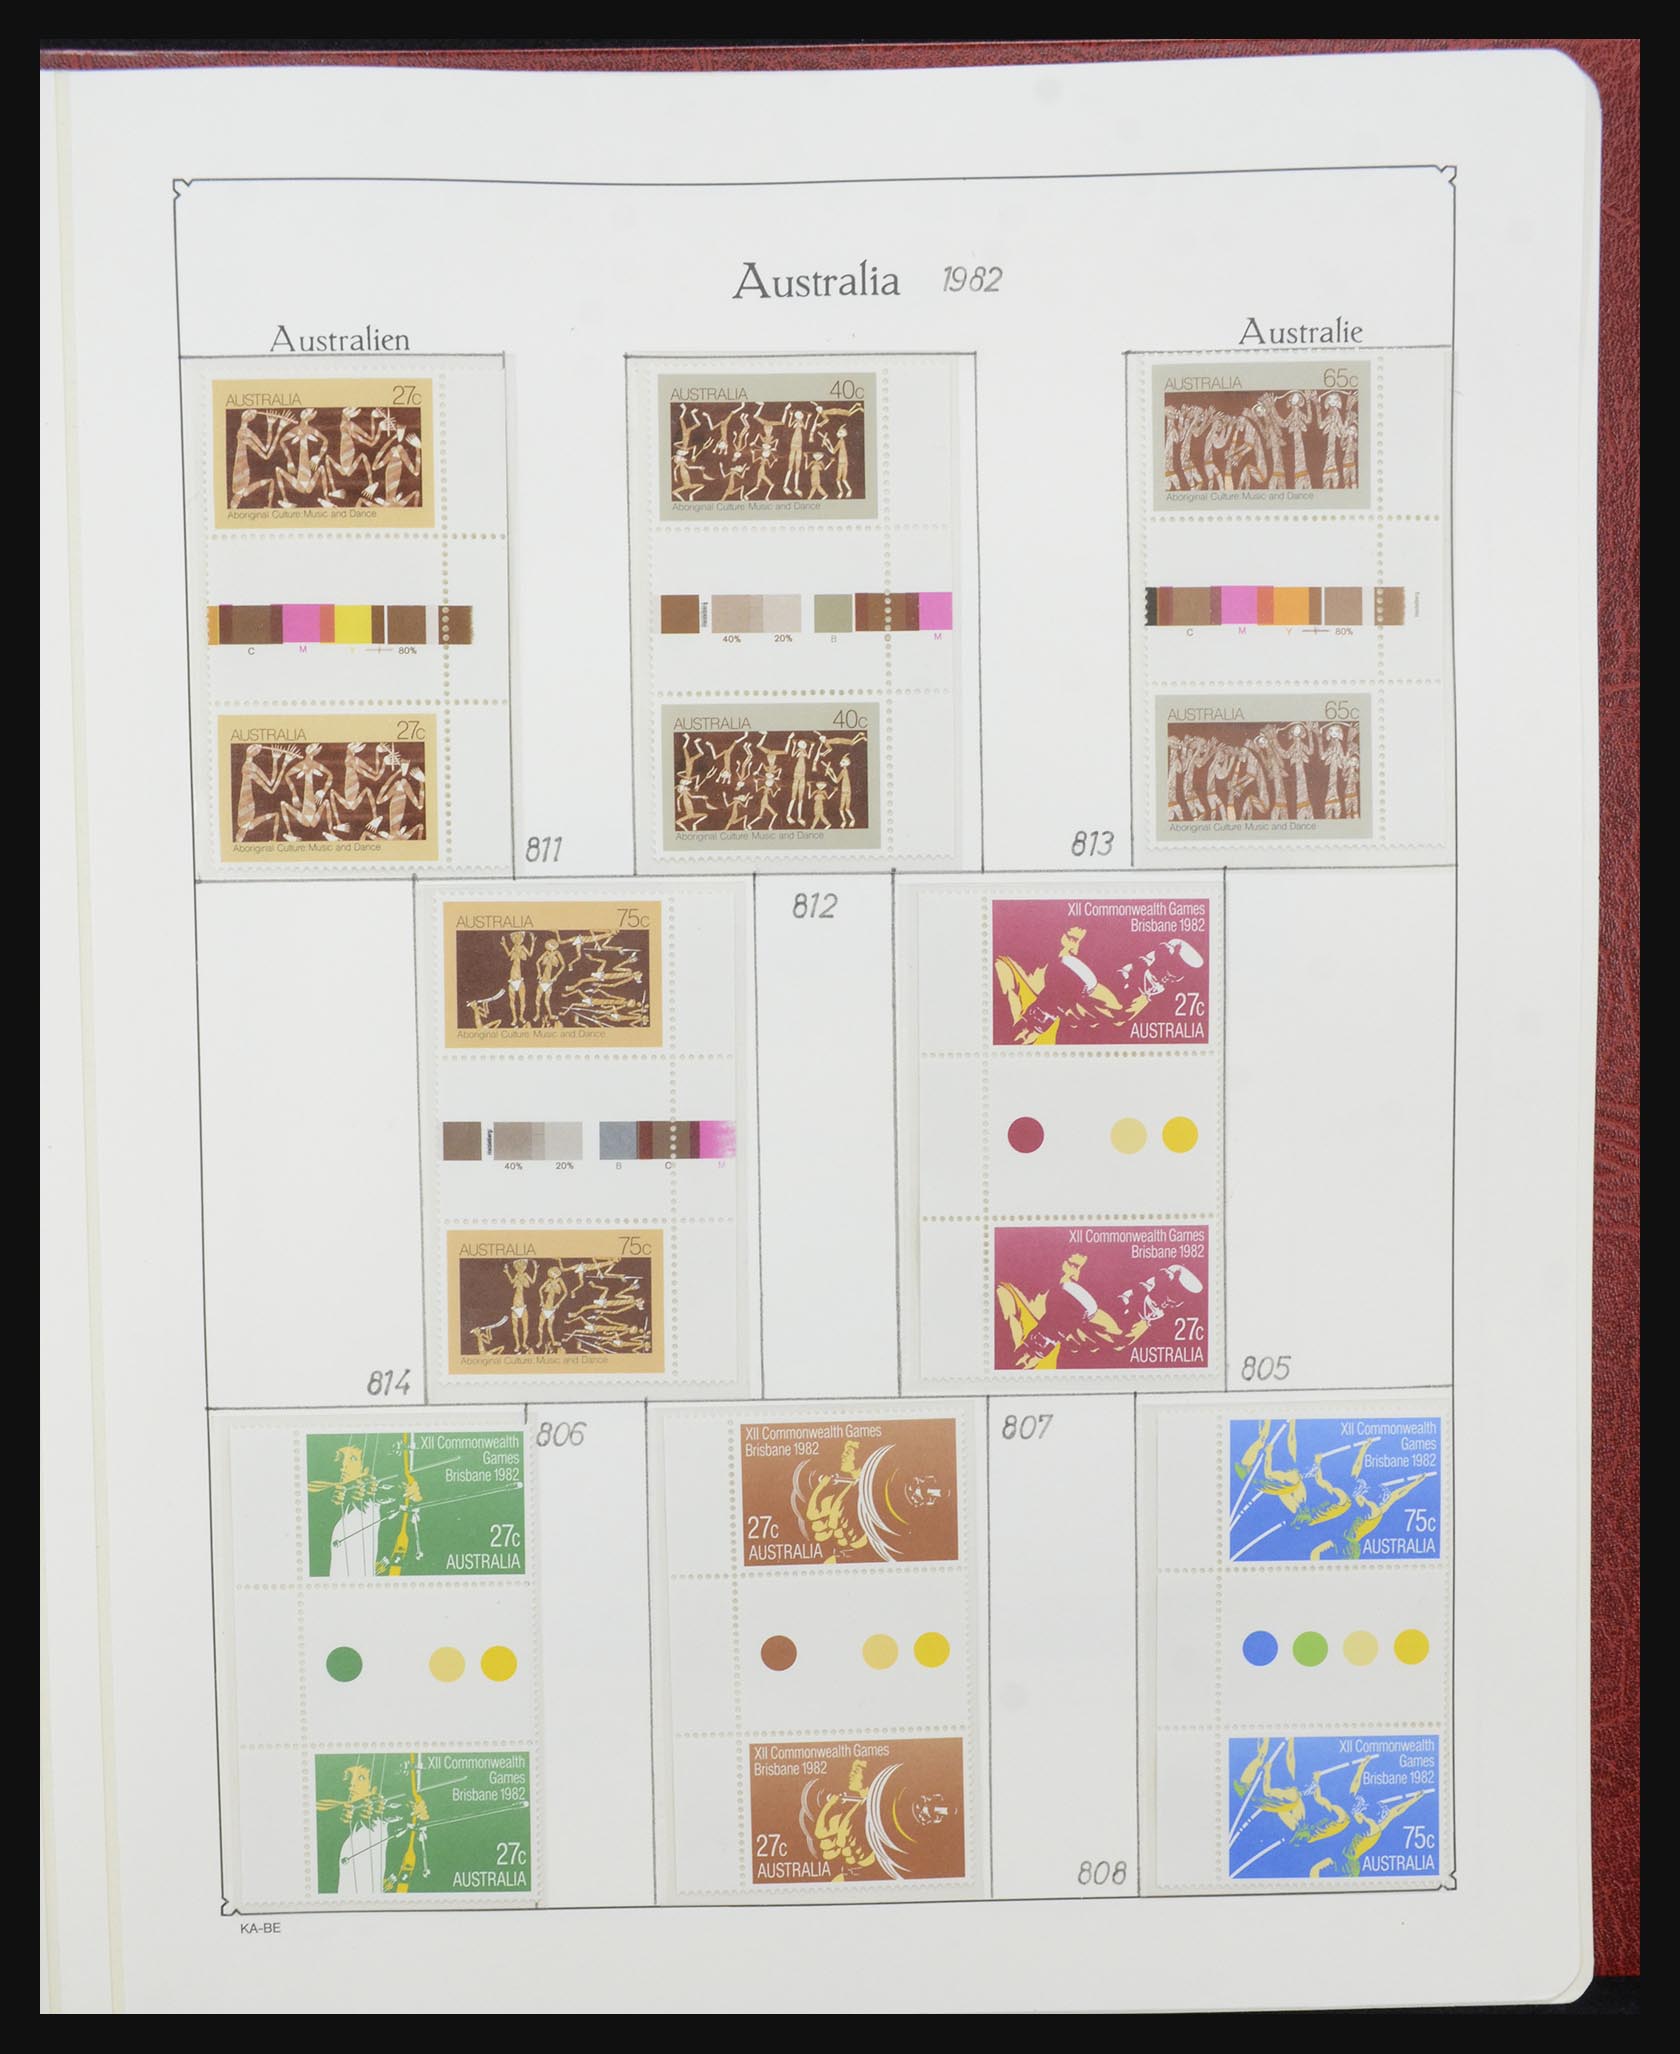 Australia 1982
Australien
Australie
AUSTRALIA 27c
Aboriginal Culture: Music and Dance
C M Y 80%
AUSTRALIA 27c
Aboriginal Culture: Music and Dance
811
AUSTRALIA 40c
Aboriginal Culture: Music and Dance
40% 20% B C M
AUSTRALIA 40c
Aboriginal Culture: Music and Dance
AUSTRALIA 65c
Aboriginal Culture: Music and Dance
C M Y 80%
AUSTRALIA 65c
Aboriginal Culture: Music and Dance
813
812
AUSTRALIA 75c
Aboriginal Culture: Music and Dance
40% 20% B C M
AUSTRALIA 75c
Aboriginal Culture: Music and Dance
814
XII Commonwealth Games
Brisbane 1982
27c
AUSTRALIA
XII Commonwealth Games
Brisbane 1982
27c
AUSTRALIA
805
XII Commonwealth
Games
Brisbane 1982
27c
AUSTRALIA
XII Commonwealth
Games
Brisbane 1982
27c
AUSTRALIA
806
XII Commonwealth Games
Brisbane 1982
27c
AUSTRALIA
XII Commonwealth Games
Brisbane 1982
27c
AUSTRALIA
807
XII Commonwealth
Games
Brisbane 1982
75c
AUSTRALIA
XII Commonwealth
Games
Brisbane 1982
75c
AUSTRALIA
808
KA-BE